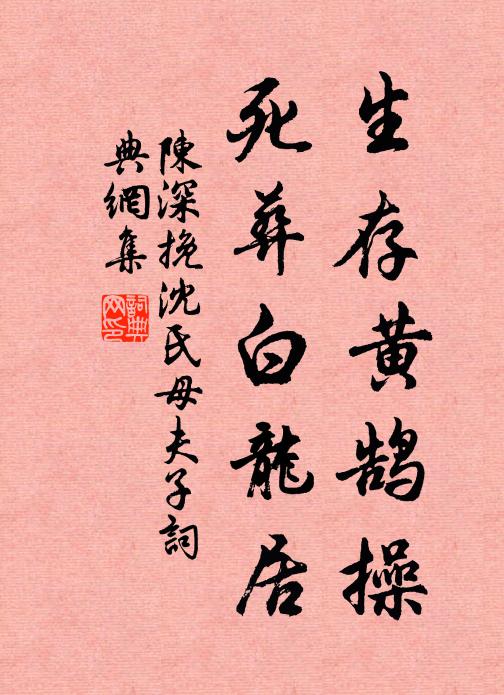 生存黄鹄操
死葬白龍居
陳深挽沈氏母夫子詞
典網集
詞典網印